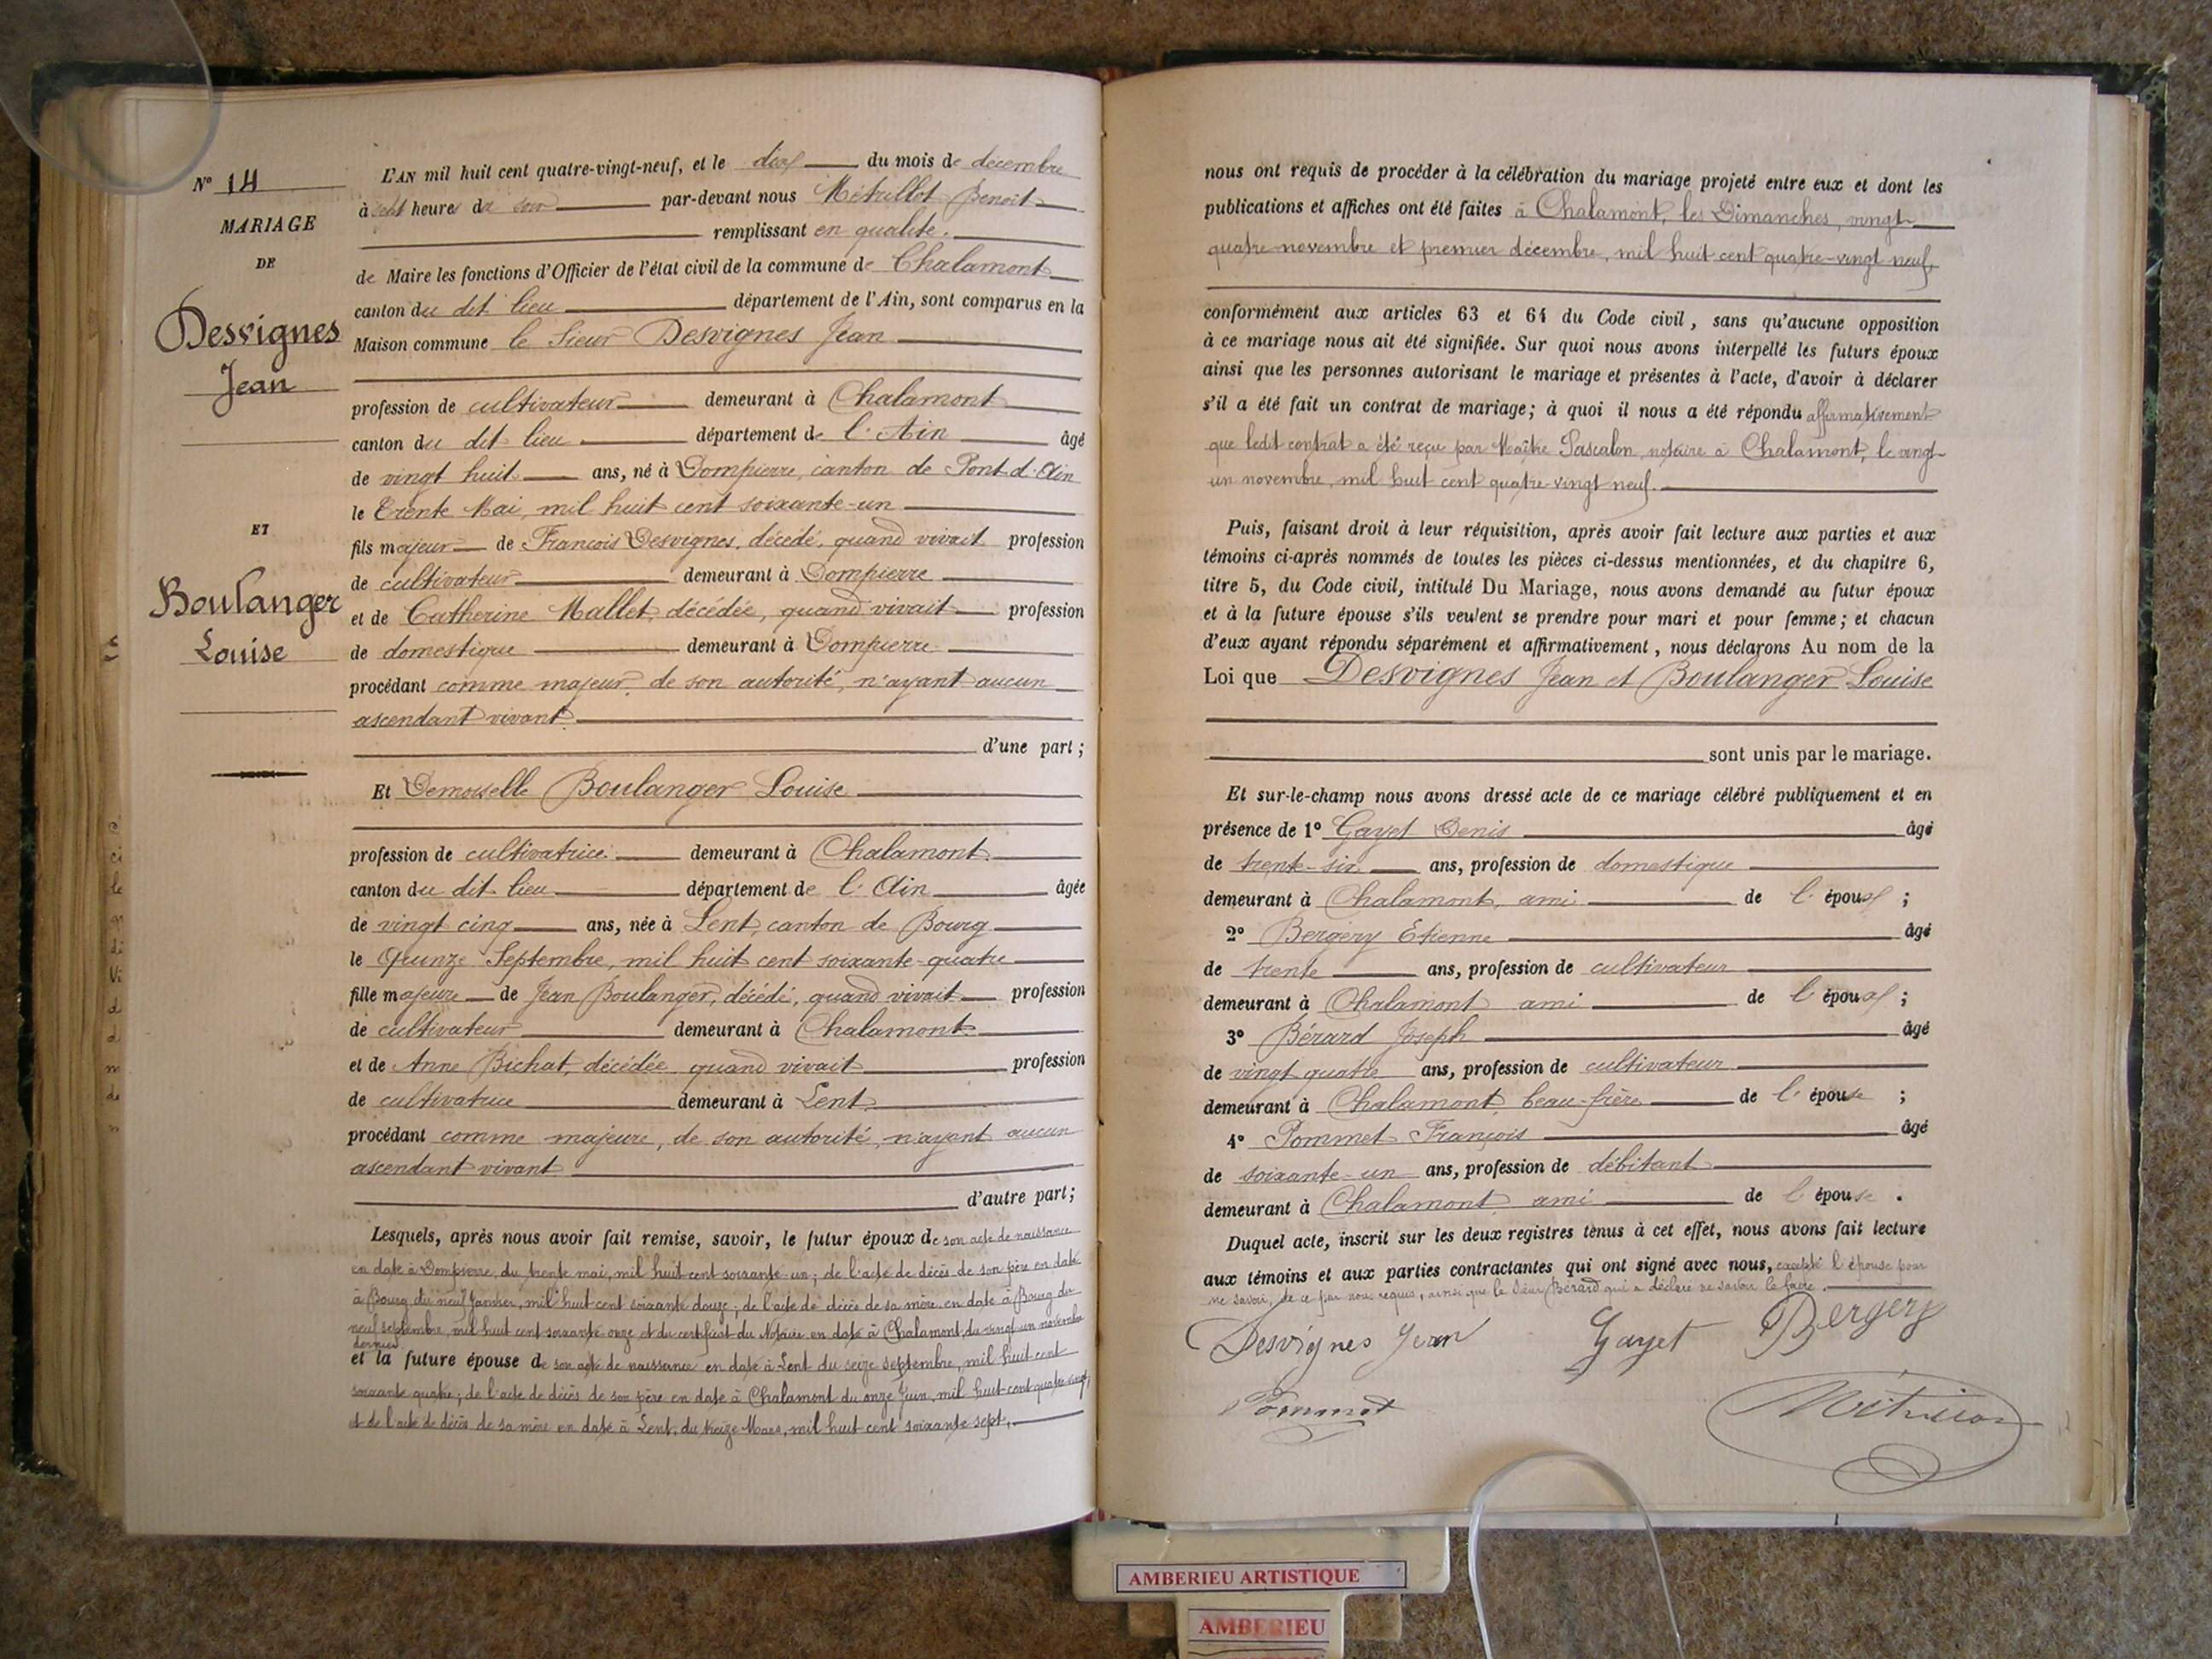 N° 14
MARIAGE
DE
Desvignes
Jean
ET
Boulanger
Louise
L'AN mil huit cent quatre-vingt-neuf, et le dix du mois de décembre
à sept heures du soir par-devant nous Métrillot Benoît
remplissant en qualité
de Maire les fonctions d'Officier de l'état civil de la commune de Chalamont
canton du dit lieu département de l'Ain, sont comparus en la
Maison commune le Sieur Desvignes Jean
profession de cultivateur demeurant à Chalamont
canton du dit lieu département de l'Ain âgé
de vingt huit ans, né à Dompierre, canton de Pont d'Ain
le Trente Mai, mil huit cent soixante-un
fils majeur de François Desvignes, décédé, quand vivait profession
de cultivateur demeurant à Dompierre
et de Catherine Mallet, décédée, quand vivait profession
de domestique demeurant à Dompierre
procédant comme majeur, de son autorité, n'ayant aucun
ascendant vivant
d'une part ;
Et Demoiselle Boulanger Louise
profession de cultivatrice demeurant à Chalamont
canton du dit lieu département de l'Ain âgée
de vingt cinq ans, née à Lent, canton de Bourg
le Quinze Septembre, mil huit cent soixante-quatre
fille majeure de Jean Boulanger, décédé, quand vivait profession
de cultivateur demeurant à Chalamont
et de Anne Bichat, décédée quand vivait profession
de cultivatrice demeurant à Lent
procédant comme majeure, de son autorité, n'ayant aucun
ascendant vivant
d'autre part ;
Lesquels, après nous avoir fait remise, savoir, le futur époux de son acte de naissance
en date à Dompierre, du trente mai, mil huit cent soixante-un ; de l'acte de décès de son père en date
à Bourg du neuf Janvier, mil huit cent soixante douze ; de l'acte de décès de sa mère en date à Bourg du
neuf septembre, mil huit cent soixante onze et du certificat du Notaire en date à Chalamont, du vingt un novembre
dernier
et la future épouse de son acte de naissance en date à Lent du seize septembre, mil huit cent
soixante quatre ; de l'acte de décès de son père en date à Chalamont du onze Juin, mil huit cent quatre vingt,
et de l'acte de décès de sa mère en date à Lent, du treize Mars, mil huit cent soixante sept,
nous ont requis de procéder à la célébration du mariage projeté entre eux et dont les
publications et affiches ont été faites à Chalamont, les Dimanches, vingt-
quatre novembre et premier décembre, mil huit cent quatre-vingt neuf,
conformément aux articles 63 et 64 du Code civil, sans qu'aucune opposition
à ce mariage nous ait été signifiée. Sur quoi nous avons interpellé les futurs époux
ainsi que les personnes autorisant le mariage et présentes à l'acte, d'avoir à déclarer
s'il a été fait un contrat de mariage ; à quoi il nous a été répondu affirmativement
que ledit contrat a été reçu par Maître Pascalon, notaire à Chalamont, le vingt-
un novembre, mil huit cent quatre-vingt neuf.
Puis, faisant droit à leur réquisition, après avoir fait lecture aux parties et aux
témoins ci-après nommés de toutes les pièces ci-dessus mentionnées, et du chapitre 6,
titre 5, du Code civil, intitulé Du Mariage, nous avons demandé au futur époux
et à la future épouse s'ils veulent se prendre pour mari et pour femme ; et chacun
d'eux ayant répondu séparément et affirmativement, nous déclarons Au nom de la
Loi que Desvignes Jean et Boulanger Louise
sont unis par le mariage.
Et sur-le-champ nous avons dressé acte de ce mariage célébré publiquement et en
présence de 1° Gayet Denis âgé
de trente-six ans, profession de domestique
demeurant à Chalamont, ami de l'époux ;
2° Bergery Etienne âgé
de trente ans, profession de cultivateur
demeurant à Chalamont ami de l'époux ;
3° Bérard Joseph âgé
de vingt quatre ans, profession de cultivateur
demeurant à Chalamont, beau-frère de l'épouse ;
4° Pommet François âgé
de soixante-un ans, profession de débitant
demeurant à Chalamont ami de l'épouse .
Duquel acte, inscrit sur les deux registres tenus à cet effet, nous avons fait lecture
aux témoins et aux parties contractantes qui ont signé avec nous, excepté l'épouse pour
ne savoir, de ce par nous requis, ainsi que le Sieur Bérard qui a déclaré ne savoir le faire.
Desvignes Jean Gayet Bergery
Pommet
AMBERIEU ARTISTIQUE
AMBERIEU